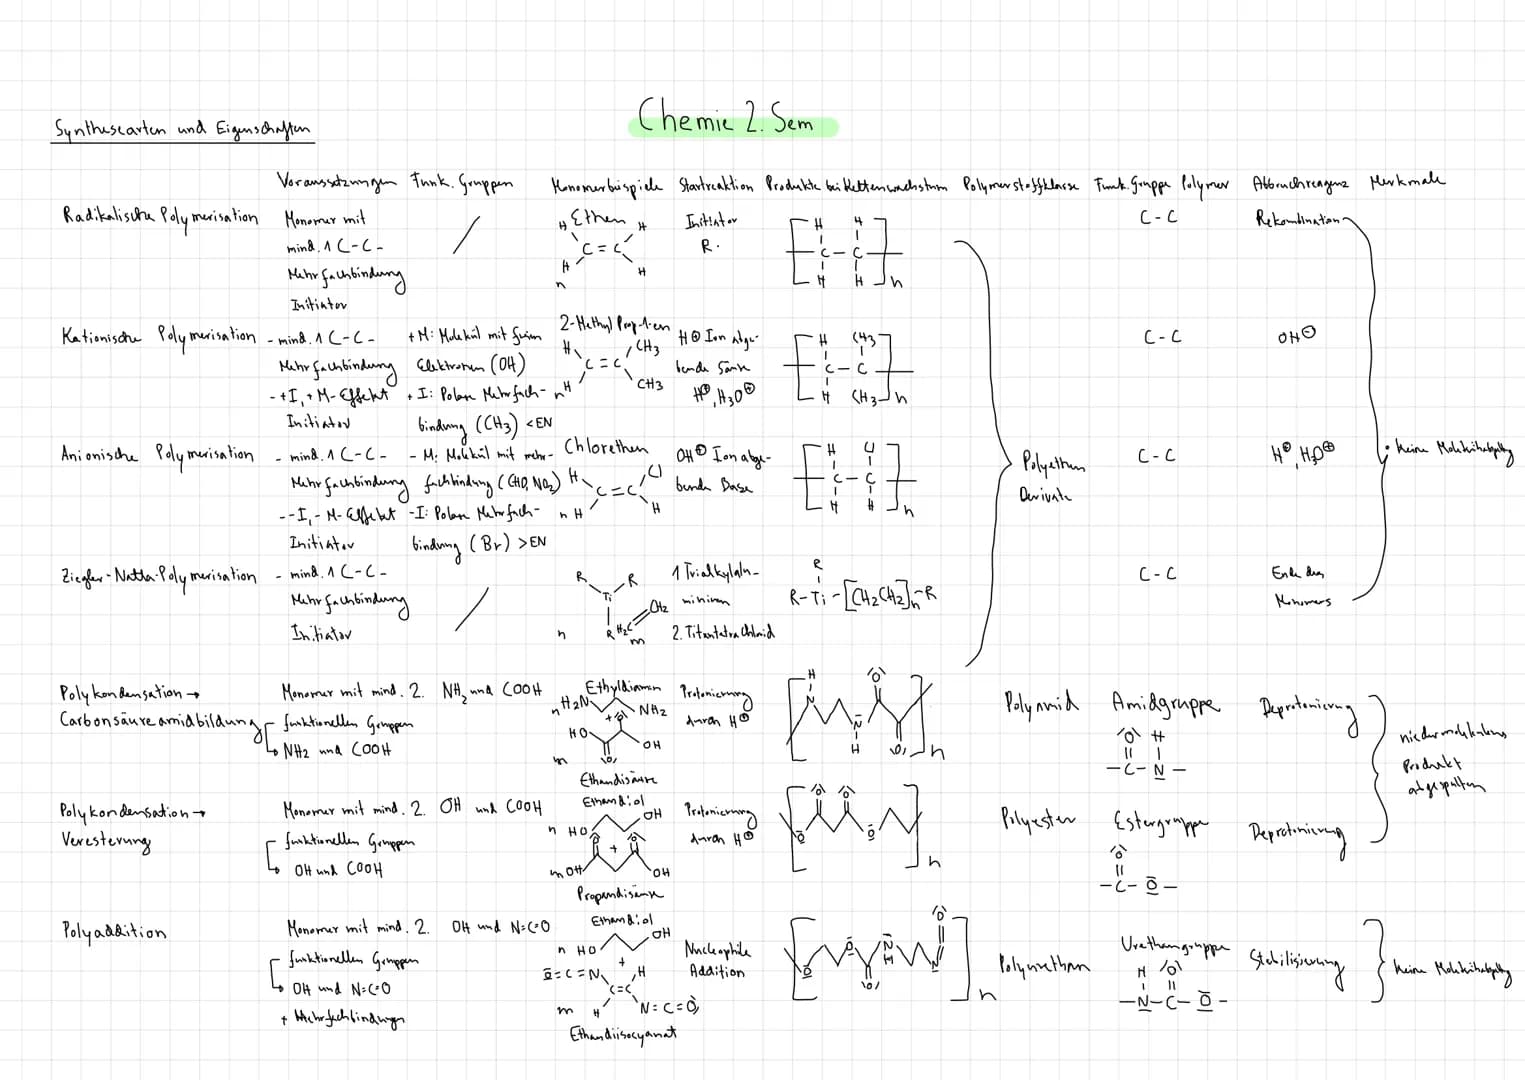 Chemie 2. Sem
Synthesearten und Eigenschaften
Voraussetzungen Funk. Gruppen Monomerbeispiele Startreaktion Produkte bei Kettenwachstum Polymerstoffklasse Funk. Gruppe Polymer Abbruchreagenz Merkmale
Radikalische Polymerisation
Monomer mit
mind. 1 C-C-
Mehrfachbindung
Initiator
/
Ethen
H H
C=C
H H
n
Initiator
R·
H H
C-C
H H
n
C-C
Rekombination
Kationische Polymerisation
- mind. 1 C-C-
Mehrfachbindung
- +I, +M-Effekt
Initiator
+M: Molekül mit freien
Elektronen (OH)
+I: Polare Mehrfach-
bindung (CH3) <EN
2-Methyl Prop-1-en
H CH3
C=C
n H CH3
H⊕ Ion abge-
bende Säure
H⊕, H3O⊕
H CH3
C-C
H CH3
n
C-C
OH⊖
Anionische Polymerisation
- mind. 1 C-C-
Mehrfachbindung
- -I, -M-Effekt
Initiator
-M: Molekül mit mehr-
fachbindung (CHO, NO2)
-I: Polare Mehrfach-
bindung (Br) >EN
Chlorethen
H Cl
C=C
n H H
OH⊖ Ion abge-
bende Base
H Cl
C-C
H H
n
Polyethen
Derivate
C-C
H⊕, H3O⊕
keine Molekülabspaltung
Ziegler-Natta-Polymerisation
- mind. 1 C-C-
Mehrfachbindung
Initiator
/
R R
Ti
CH2
R H2C
n m
1 Trialkylalu-
minium
2. Titantetrachlorid
R
R-Ti-[CH2CH2]n-R
C-C
Ende des
Monomers
Polykondensation →
Carbonsäureamidbildung
Monomer mit mind. 2.
funktionellen Gruppen
NH2 und COOH
NH2 und COOH
Ethyldiamin
n H2N NH2
+ O
HO OH
m O
Ethandisäure
Protonierung
durch H⊕
H O
N
N
H O
n
Polyamid
Amidgruppe
O H
-C-N-
Deprotonierung
niedermolekulares
Produkt
abgespalten
Polykondensation →
Veresterung
Monomer mit mind. 2.
funktionellen Gruppen
OH und COOH
OH und COOH
Ethandiol
n HO OH
O + O
m OH OH
Propandisäure
Protonierung
durch H⊕
O O
O O
n
Polyester
Estergruppe
O
-C-O-
Deprotonierung
Polyaddition
Monomer mit mind. 2.
funktionellen Gruppen
OH und N=C=O
+ Mehrfachbindungen
OH und N=C=O
Ethandiol
n HO OH
+
O=C=N H
C=C
m H N=C=O
Ethandiisocyanat
Nucleophile
Addition
O
O O N H N
O
n
Polyurethan
Urethangruppe
H O
-N-C-O-
Stabilisierung
keine Molekülabspaltung